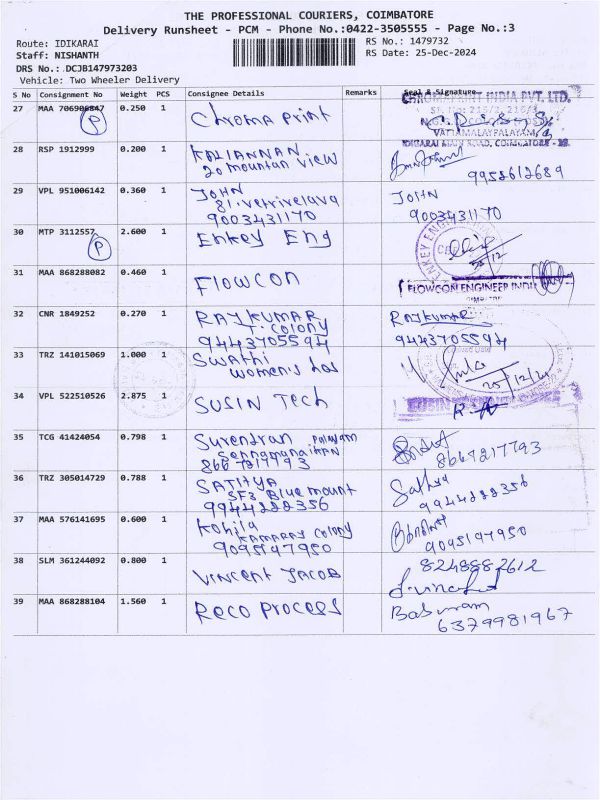 THE PROFESSIONAL COURIERS, COIMBATORE
Delivery Runsheet - PCM - Phone No.:0422-3505555 - Page No.:3
Route: IDIKARAI
RS No.: 1479732
Staff: NISHANTH
RS Date: 25-Dec-2024
DRS No.: DCJB147973203
Vehicle: Two Wheeler Delivery
S No Consignment No Weight PCS Consignee Details Remarks Seal & Signature
27 MAA 706906847 0.250 1 Chroma Print
P
INDIA PVT. LTD.
28 RSP 1912999 0.200 1 KALIANNAN
20 mountan view
9952612689
29 VPL 951006142 0.360 1 JOHN JOHN
81.vetrivelava
9003431170 9003431170
30 MTP 3112557 2.600 1 Enkey Eng
P
25/12
31 MAA 868288082 0.460 1 Flowcon
FLOWCON ENGINEER INDIA
32 CNR 1849252 0.270 1 RAJKUMAR RAJKUMAR
T. colony
9443705594 9443705594
33 TRZ 141015069 1.000 1 Swathi
women's hos
25/12/24
34 VPL 522510526 2.875 1 SUSIN Tech
35 TCG 41424054 0.798 1 Surendran
8667217793 8667217793
36 TRZ 305014729 0.788 1 SATHYA Sathya
SF3 Blue mount
9944288356 9944288356
37 MAA 576141695 0.600 1 Kohila
KAMARAJ colony
9095197950 9095197950
38 SLM 361244092 0.800 1 VINCENT JACOB
8248882612
39 MAA 868288104 1.560 1 RECO PROCESS
6379981967